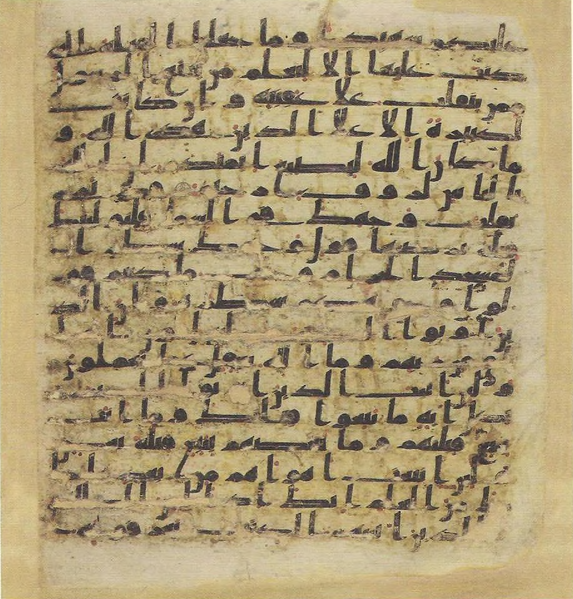 عليكم شهيدا وما جعلنا القبلة التى
كنت عليها الا لنعلم من يتبع الرسول
ممن ينقلب على عقبيه وان كانت
لكبيرة الا على الذين هدى الله و
ما كان الله ليضيع ايمنكم ان الله
بالناس لروف رحيم قد نرى
تقلب وجهك فى السما فلنولينك
قبلة ترضيها فول وجهك شطر
المسجد الحرام وحيث ما كنتم فو
لوا وجوهكم شطره وان الذ
ين اوتوا الكتب ليعلمون انه ا
لحق من ربهم وما الله بغفل عما يعملون
ولئن اتيت الذين اوتوا الكتب
بكل اية ما تبعوا قبلتك وما انت بتا
بع قبلتهم وما بعضهم بتابع قبلة بعض
ولئن اتبعت اهواهم من بعد ما جا
ك من العلم انك اذا لمن الظلمين
الذين اتينهم الكتب يعرفونه